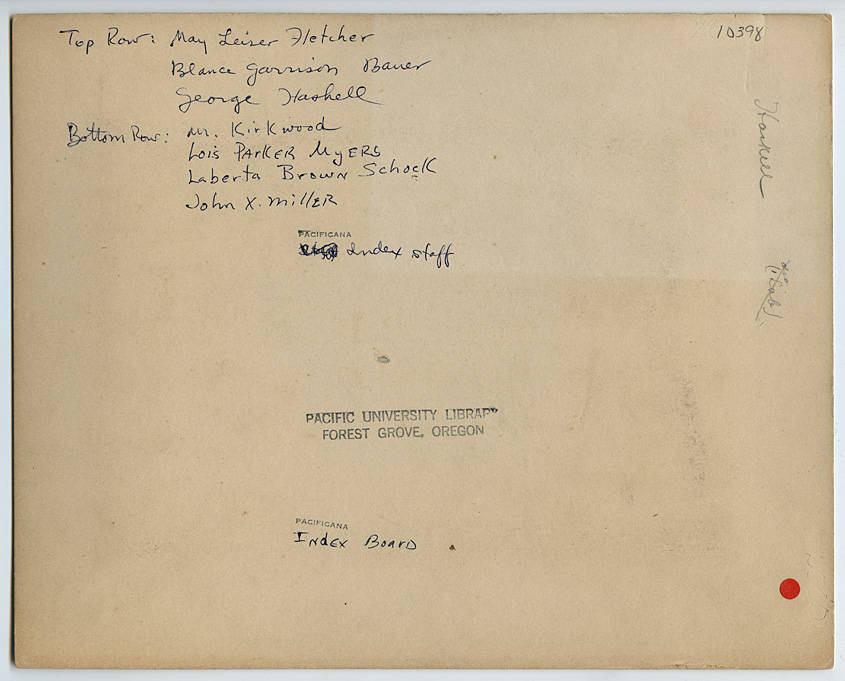 10398
Top Row: May Leiser Fletcher
Blance Garrison Bauer
George Haskell
Bottom Row: Mr. Kirkwood
Lois Parker Myers
Laberta Brown Schock
John X. Miller
PACIFICANA
Index staff
PACIFIC UNIVERSITY LIBRARY
FOREST GROVE, OREGON
PACIFICANA
Index Board
Haskell